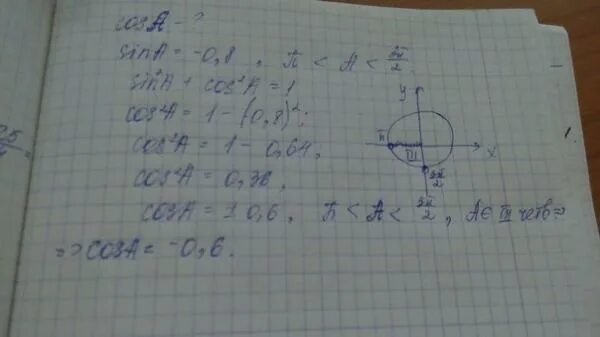 cosA - ?
sinA = -0,8 , π < A < 3π/2
sin²A + cos²A = 1
cos²A = 1 - (0,8)²;
cos²A = 1 - 0,64;
cos²A = 0,36;
cosA = ± 0,6, π < A < 3π/2, A ∈ III четв =>
=> cosA = -0,6.
y
π
III
x
3π/2
1.